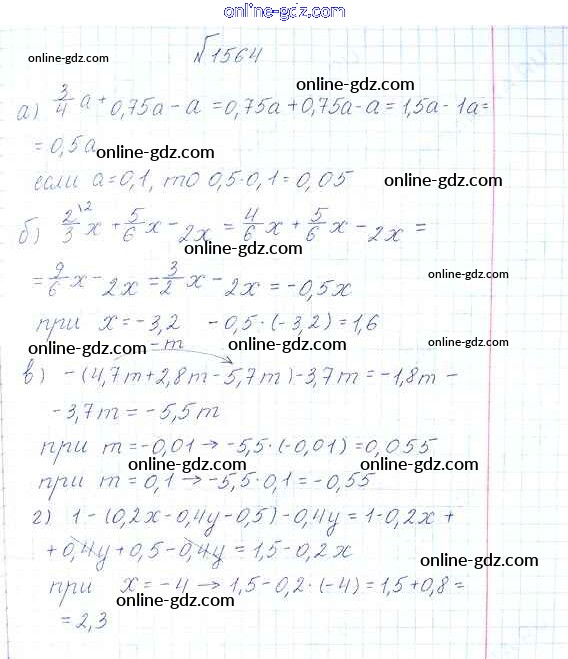 online-gdz.com
№1564
online-gdz.com
online-gdz.com
а) 3/4 a + 0,75a - a = 0,75a + 0,75a - a = 1,5a - 1a =
= 0,5a
online-gdz.com
если a = 0,1, то 0,5·0,1 = 0,05
online-gdz.com
б) 2/3\2 x + 5/6 x - 2x = 4/6 x + 5/6 x - 2x =
= 9/6 x - 2x = 3/2 x - 2x = -0,5x
online-gdz.com
при x = -3,2 -0,5·(-3,2) = 1,6
online-gdz.com
online-gdz.com
online-gdz.com
-m
в) -(4,7m + 2,8m - 5,7m) - 3,7m = -1,8m -
- 3,7m = -5,5m
online-gdz.com
при m = -0,01 → -5,5·(-0,01) = 0,055
online-gdz.com
online-gdz.com
при m = 0,1 → -5,5·0,1 = -0,55
г) 1 - (0,2x - 0,4y - 0,5) - 0,4y = 1 - 0,2x +
+ 0,4y + 0,5 - 0,4y = 1,5 - 0,2x
online-gdz.com
при x = -4 → 1,5 - 0,2·(-4) = 1,5 + 0,8 =
online-gdz.com
= 2,3